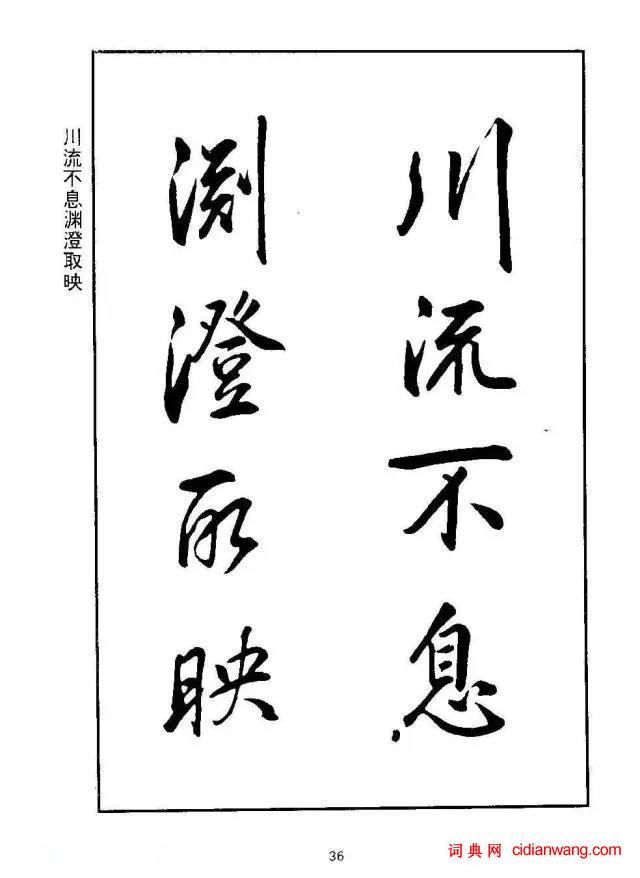 川流不息
渊澄取映
川流不息渊澄取映
36
词典网 cidianwang.com